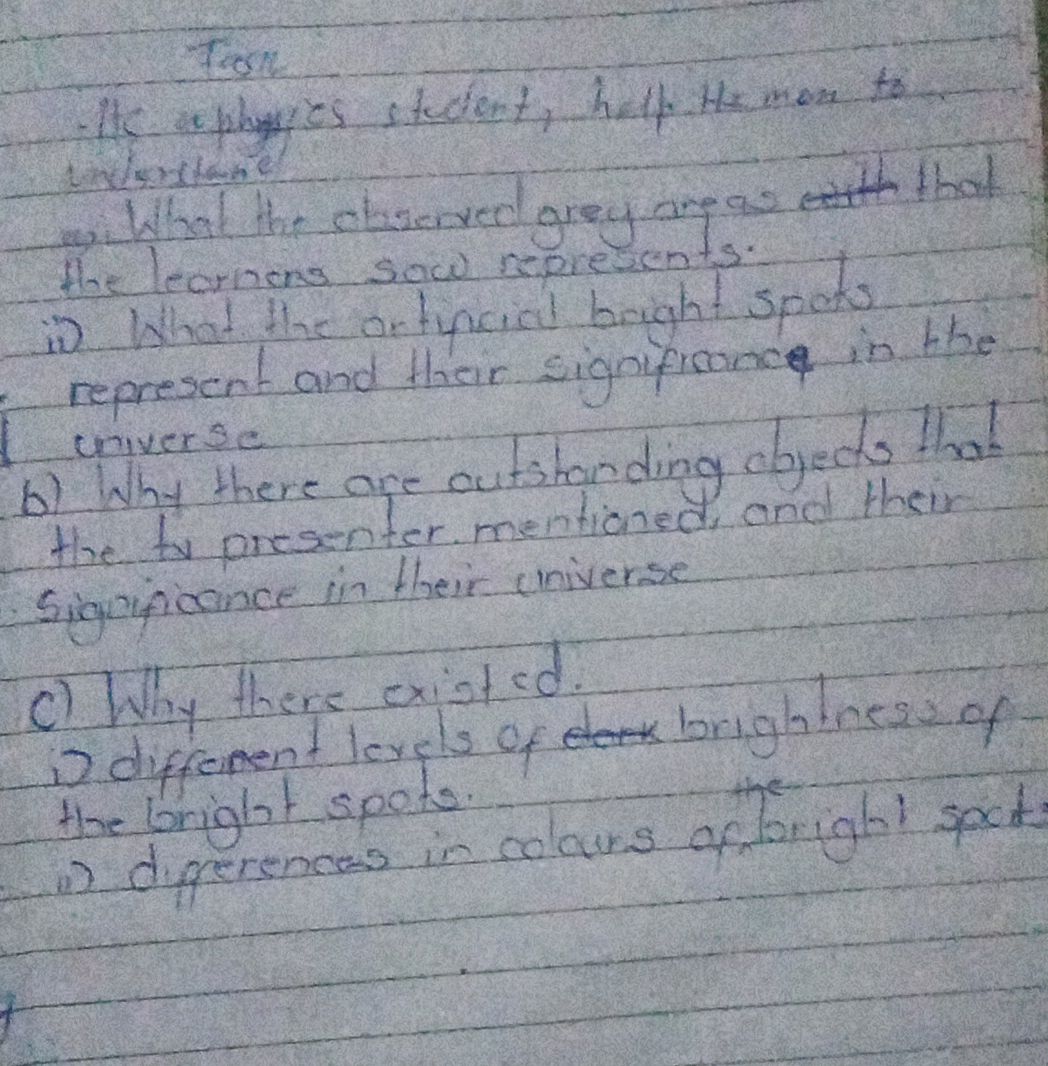 Task
As a physics student, help the man to
understand
What the observed grey areas that
the learners saw represents.
ii) What the artificial bright spots
represent and their significance in the
universe
b) Why there are outstanding objects that
the tv presenter mentioned, and their
significance in their universe
c) Why there existed.
i) different levels of brightness of
the bright spots.
ii) differences in colours of the bright spots